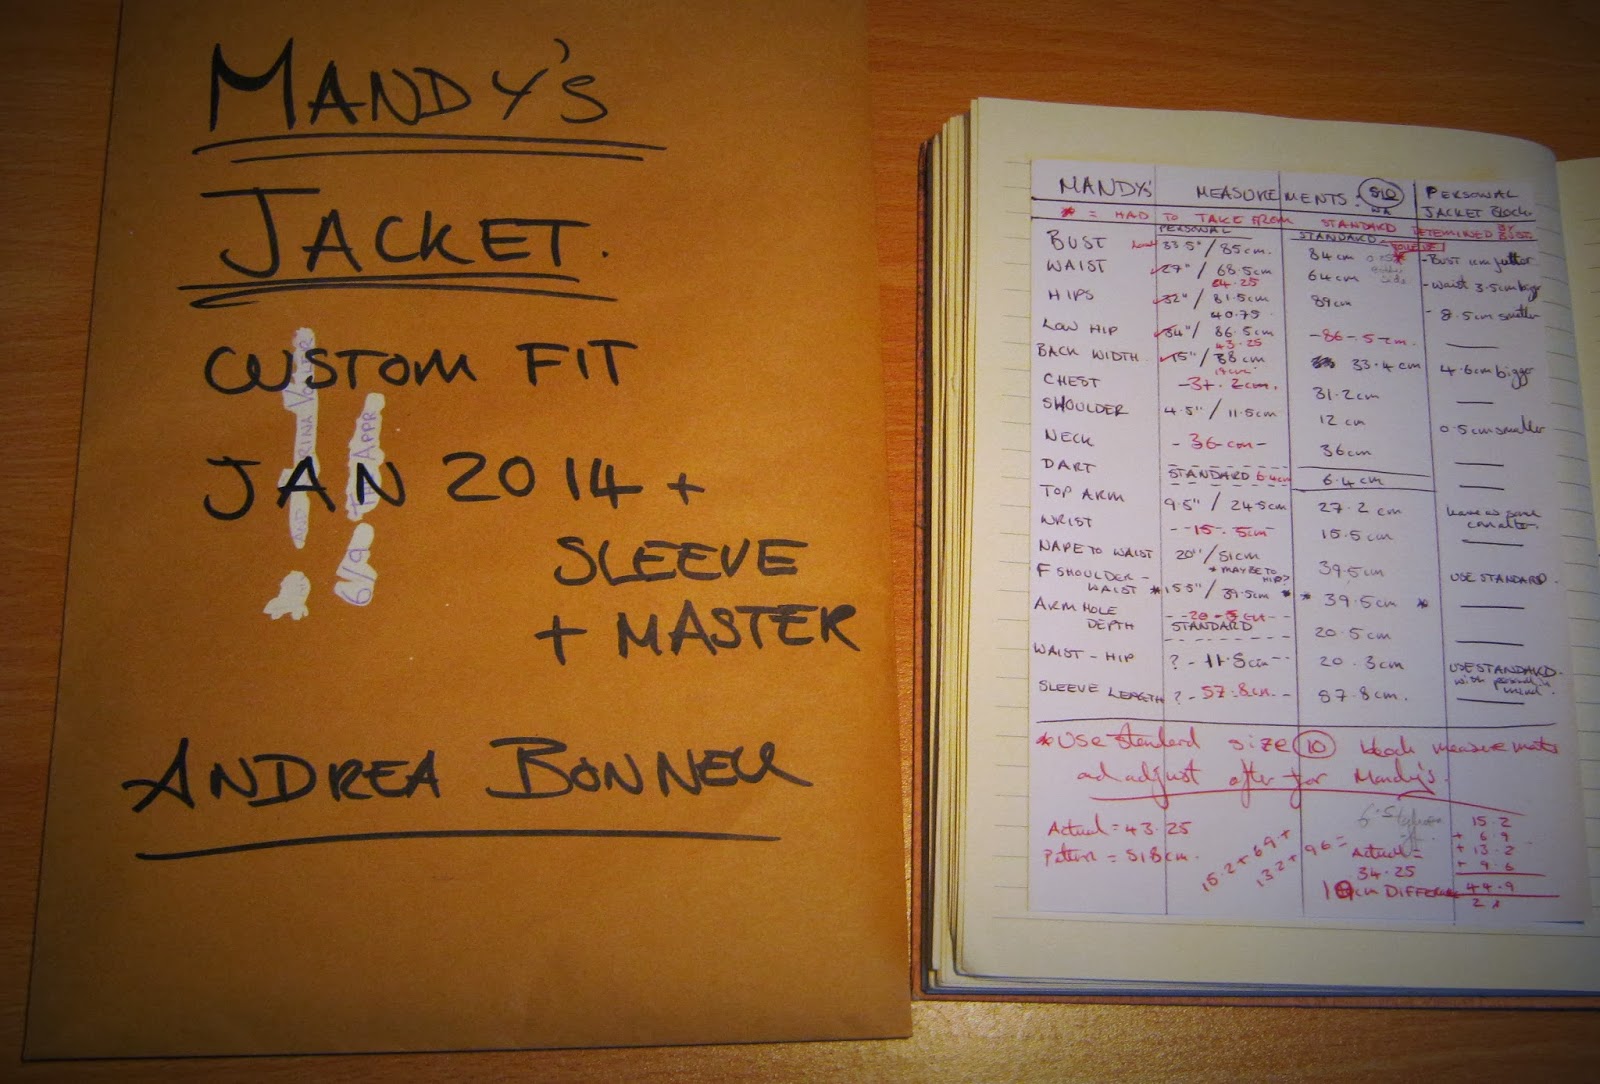 MANDY'S
JACKET.
CUSTOM FIT
JAN 2014 +
SLEEVE
+ MASTER
ANDREA BONNER
6/9
MANDYS' MEASUREMENTS: S10 PERSONAL
JACKET Block
* = HAD TO TAKE FROM STANDARD DETEMINED BY BUST
PERSONAL STANDARD
BUST 33.5" / 85cm. 84cm - BUST 1cm
WAIST 27" / 68.5cm 64cm - waist 3.5cm bigger
64.25
HIPS 32" / 81.5cm 89cm - 8.5cm smaller
40.75
LOW HIP 34" / 86.5cm -86-5-cm.
43.25
BACK WIDTH 15" / 38cm 33.4cm 4.6cm bigger
19cm
CHEST -31.2cm. 31.2cm
SHOULDER 4.5" / 11.5cm 12cm 0.5cm smaller
NECK - 36cm - 36cm
DART STANDARD 6.4cm 6.4cm
TOP ARM 9.5" / 24.5cm 27.2cm leave as same
WRIST --15.5cm-- 15.5cm
NAPE TO WAIST 20" / 51cm 39.5cm USE STANDARD.
* MAYBE TO HIP?
F SHOULDER -
WAIST * 15.5" / 39.5cm * * 39.5cm *
ARM HOLE --20-5cm--
DEPTH STANDARD 20.5cm
WAIST - HIP ? - 11.5cm -- 20.3cm USE STANDARD.
with personal in
mind.
SLEEVE LENGTH ? - 57.8cm. -- 57.8cm.
* Use standard size 10 block measurements
and adjust after for Mandy's.
Actual = 43.25
Pattern = 51.8cm.
15.2 + 6.9 +
13.2 + 9.6 =
6.5
Actual =
34.25
cm DIFFERENCE
15.2
+ 6.9
+ 13.2
+ 9.6
44.9